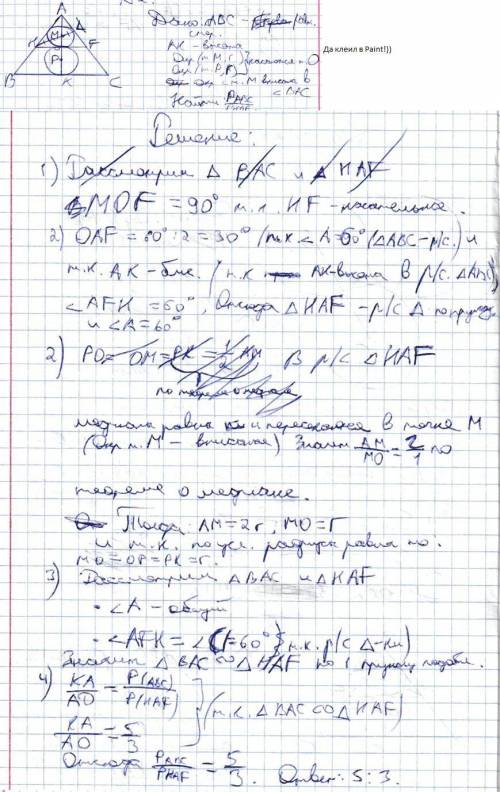 A
H
M
Д
O
F
P
B
K
C
Дано: ABC –
AK – высота
Окр (т. M, r)
Окр (т. P, r)
окр с т. M вписана в
∠BAC
Найти P_ABC / P_HAF
Да клеил в Paint!))
Решение:
1) Рассмотрим Δ BAC и Δ HAF
∠MOF = 90° т.к. HF – касательная.
2) OAF = 60°:2 = 30° (т.к. ∠A = 60° (ΔABC – р/с.) и
т.к. AK – бис. (т.к. AK – высота в р/с. ΔABC),
∠AFH = 60°, Отсюда ΔHAF – р/с Δ по
и ∠A = 60°
2) PO = OM = PK = 1/2 В р/с ΔHAF
по теореме о медиане
медиана равна и пересекаются в точке M
(Окр т. M – вписанная) Значит AM/MO = 2/1 по
теореме о медиане.
Тогда: AM = 2r, MO = r
и т.к. по усл. радиусы равны то:
MO = OP = PK = r.
3) Рассмотрим ΔBAC и ΔHAF
• ∠A – общий
• ∠AFH = ∠C (= 60°) т.к. р/с Δ-ки
Значит ΔBAC ∾ ΔHAF по 1 признаку подоби.
4) KA/AO = P(ABC)/P(HAF) (т.к. ΔBAC ∾ ΔHAF)
KA/AO = 5/3
Отсюда P_ABC/P_HAF = 5/3. Ответ: 5:3.